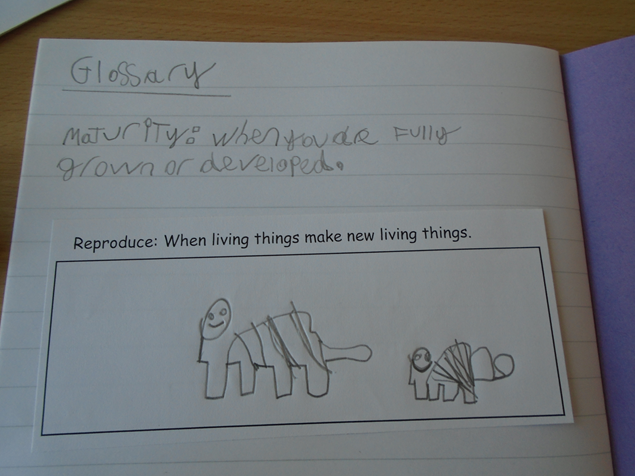 Glossary
Maturity: when you are fully
grown or developed.
Reproduce: When living things make new living things.